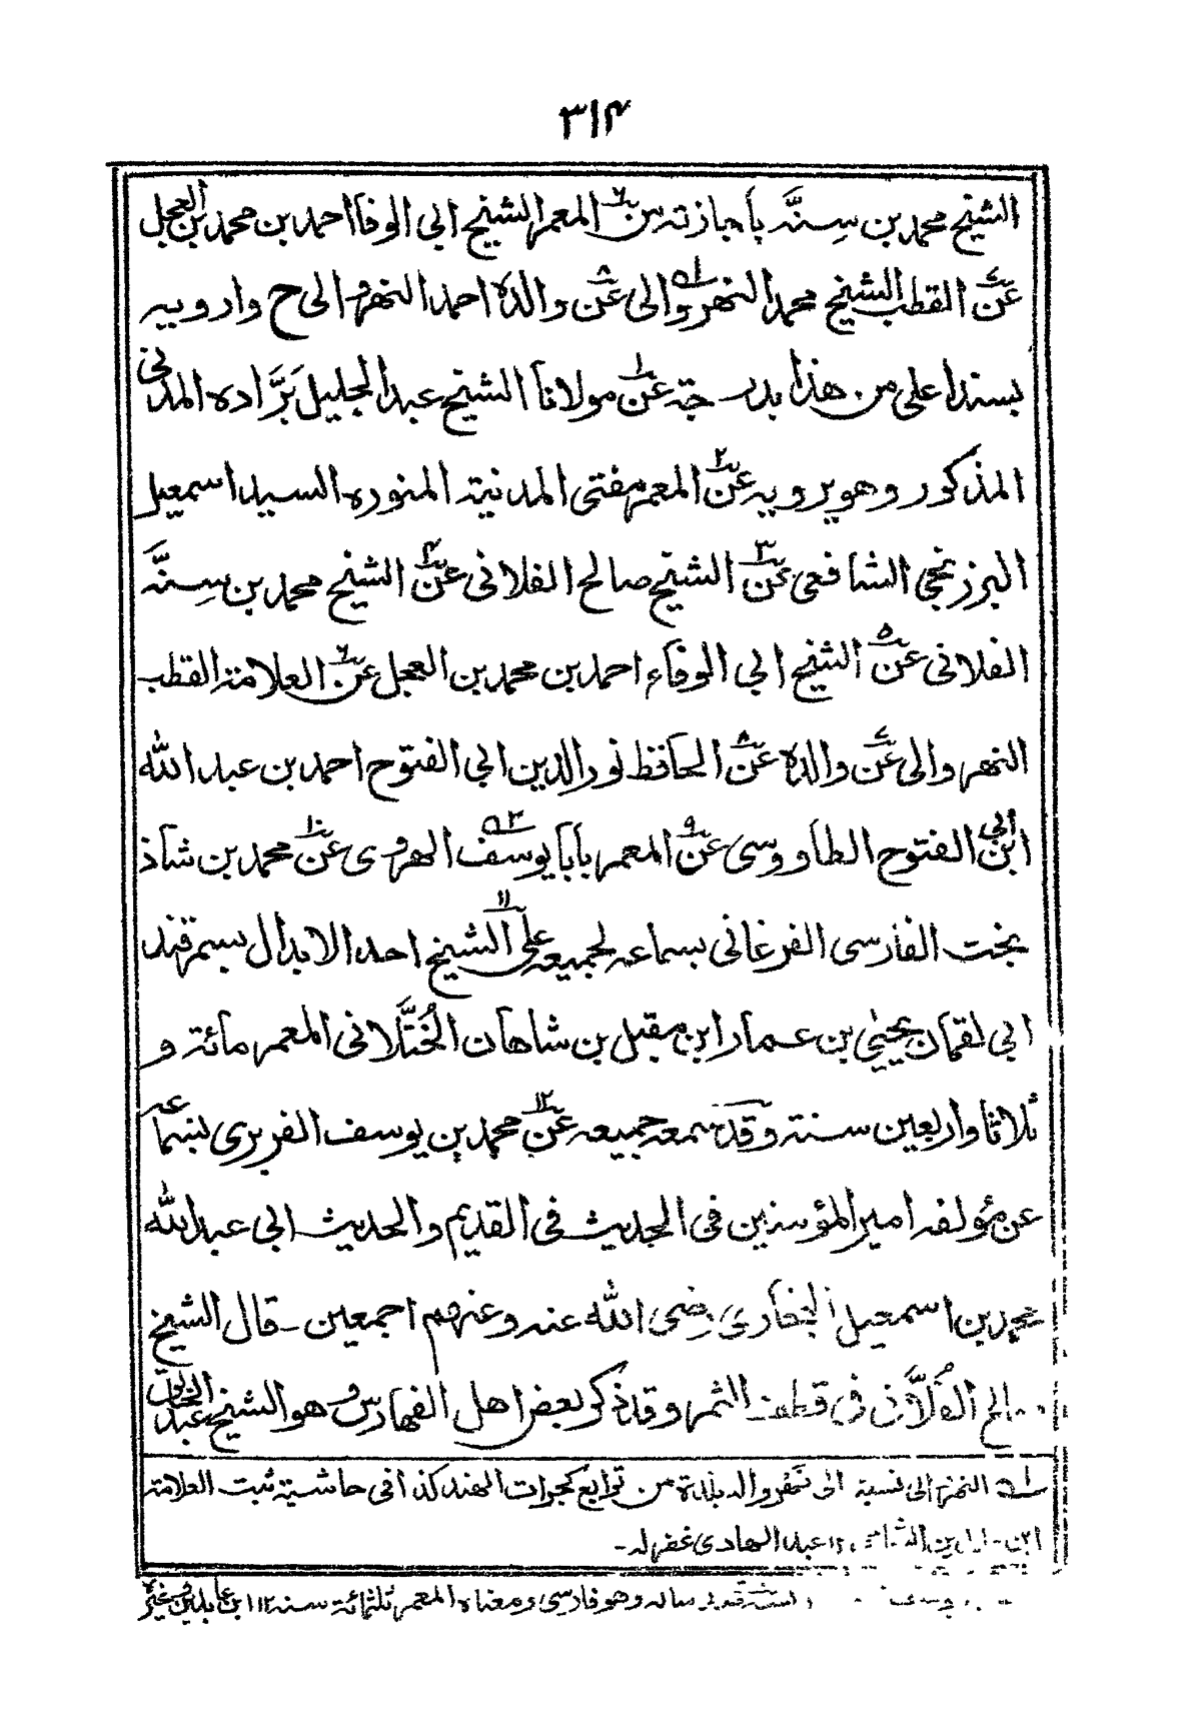 ٣١٤
الشيخ محمد بن سِنَّه باجازته من٦ المعمر الشيخ ابى الوفا احمد بن محمد بن العجل
عن٧ القطب الشيخ محمد النهروالى عن٨ والده احمد النهروالى ح وارويه
بسند اعلى من هذا بدرجة عن١ مولانا الشيخ عبد الجليل بَرَّاده المدنى
المذكور وهو يرويه عن٢ المعمر مفتى المدنية المنوره السيد اسمعيل
البرزنجى الشافعى عن٣ الشيخ صالح الفلانى عن٤ الشيخ محمد بن سِنَّه
الفلانى عن٥ الشيخ ابى الوفاء احمد بن محمد بن العجل عن٦ العلامة القطب
النهروالى عن٧ والده عن٨ الحافظ نور الدين ابى الفتوح احمد بن عبد الله
ابن ابى الفتوح الطاووسى عن٩ المعمر بابا يوسف الهروى عن١٠ محمد بن شاذ
بخت الفارسى الفرغانى بسماعه لجميعه على١١ الشيخ احد الابدال بسمرقند
ابى لقمان يحيىٰ بن عمار ابن مقبل بن شاهان الخُتَّلانى المعمر مائة و
ثلاثا واربعين سنة وقد سمعه جميعه عن١٢ محمد بن يوسف الفربرى بسماعه
عن مؤلفه امير المؤمنين فى الحديث فى القديم والحديث ابى عبد الله
محمد بن اسمعيل البخارى رضى الله عنه وعنهم اجمعين ـ قال الشيخ
صالح الفُلَّانى فى قطف الثمر وقد ذكر بعض اهل الفهارس وهو الشيخ عبد الخالق
١ه النهروالى نسبة الى نهروالہ بلدة من توابع كجرات الهند كذا فى حاشية ثبت العلامة
ابن عابدين الشامى ١٢ عبد الهادى غفر له ـ
يوسف سالہ وهو فارسى ومعناه المعمر ثلثمائة سنة ١٢ ابن عابدين وغيره